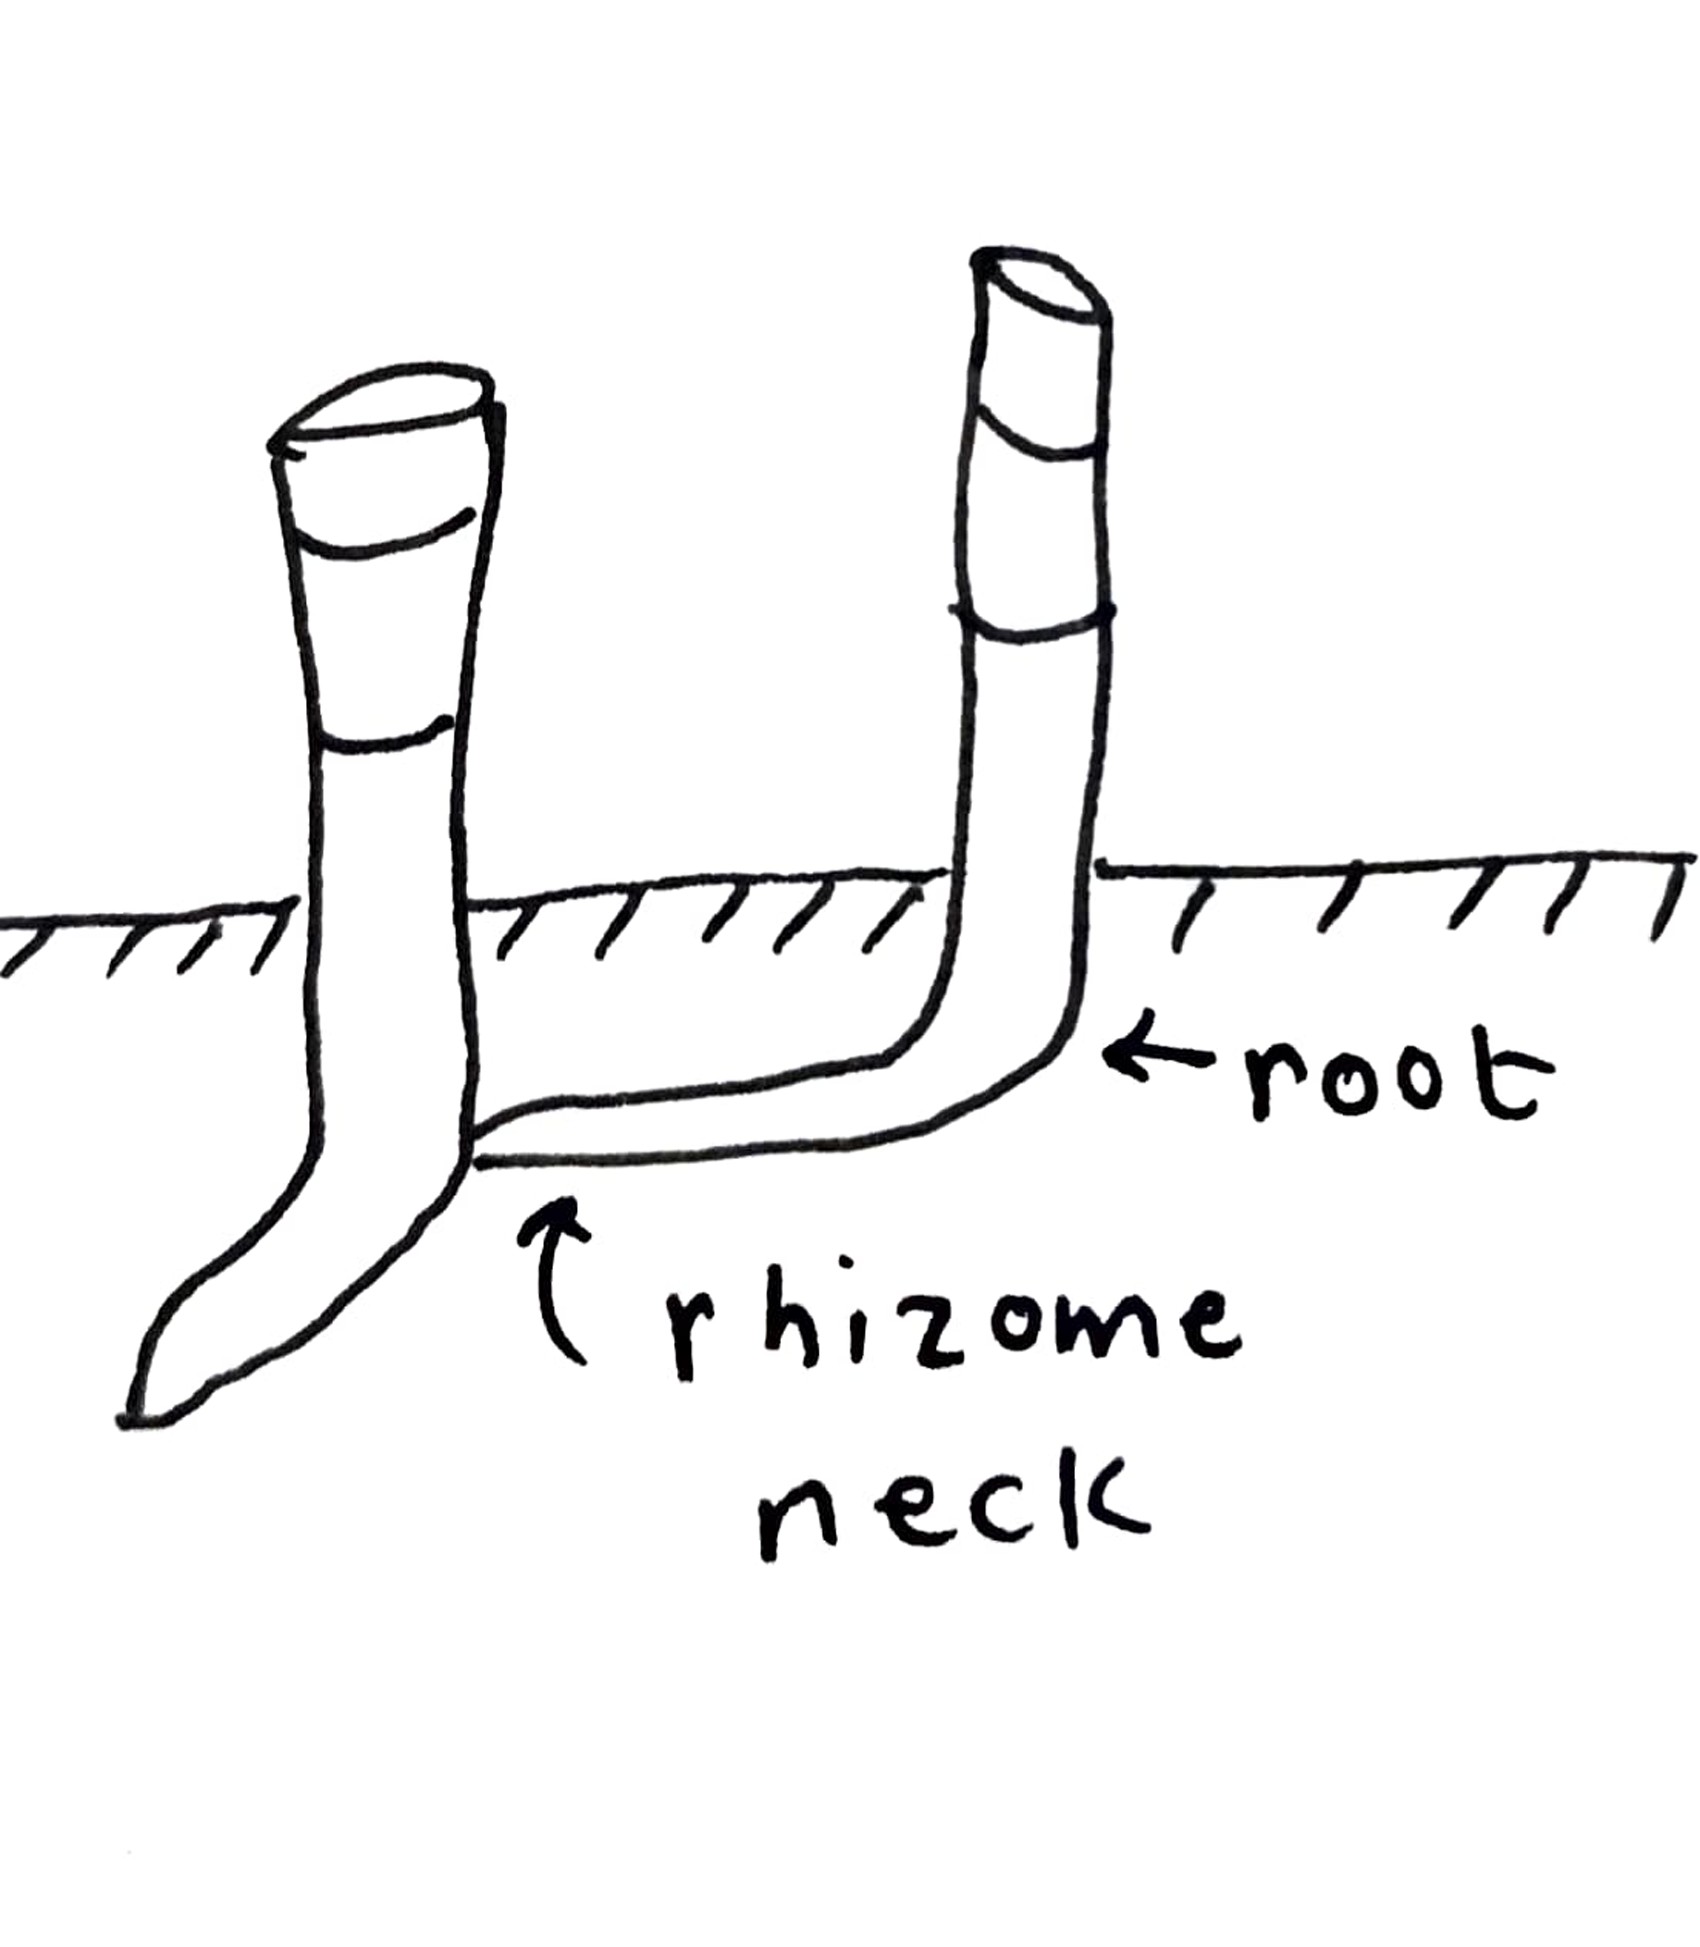 root
rhizome
neck